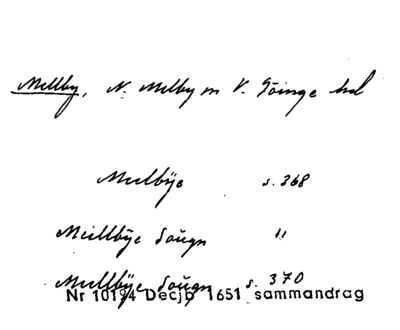 Mellby, N. Melby sn V. Göinge hd
Mellbÿe s. 368
Meillbÿe Soŭgn "
Mellbÿe Soŭgn s. 370
Nr 10194 Decjb 1651 sammandrag